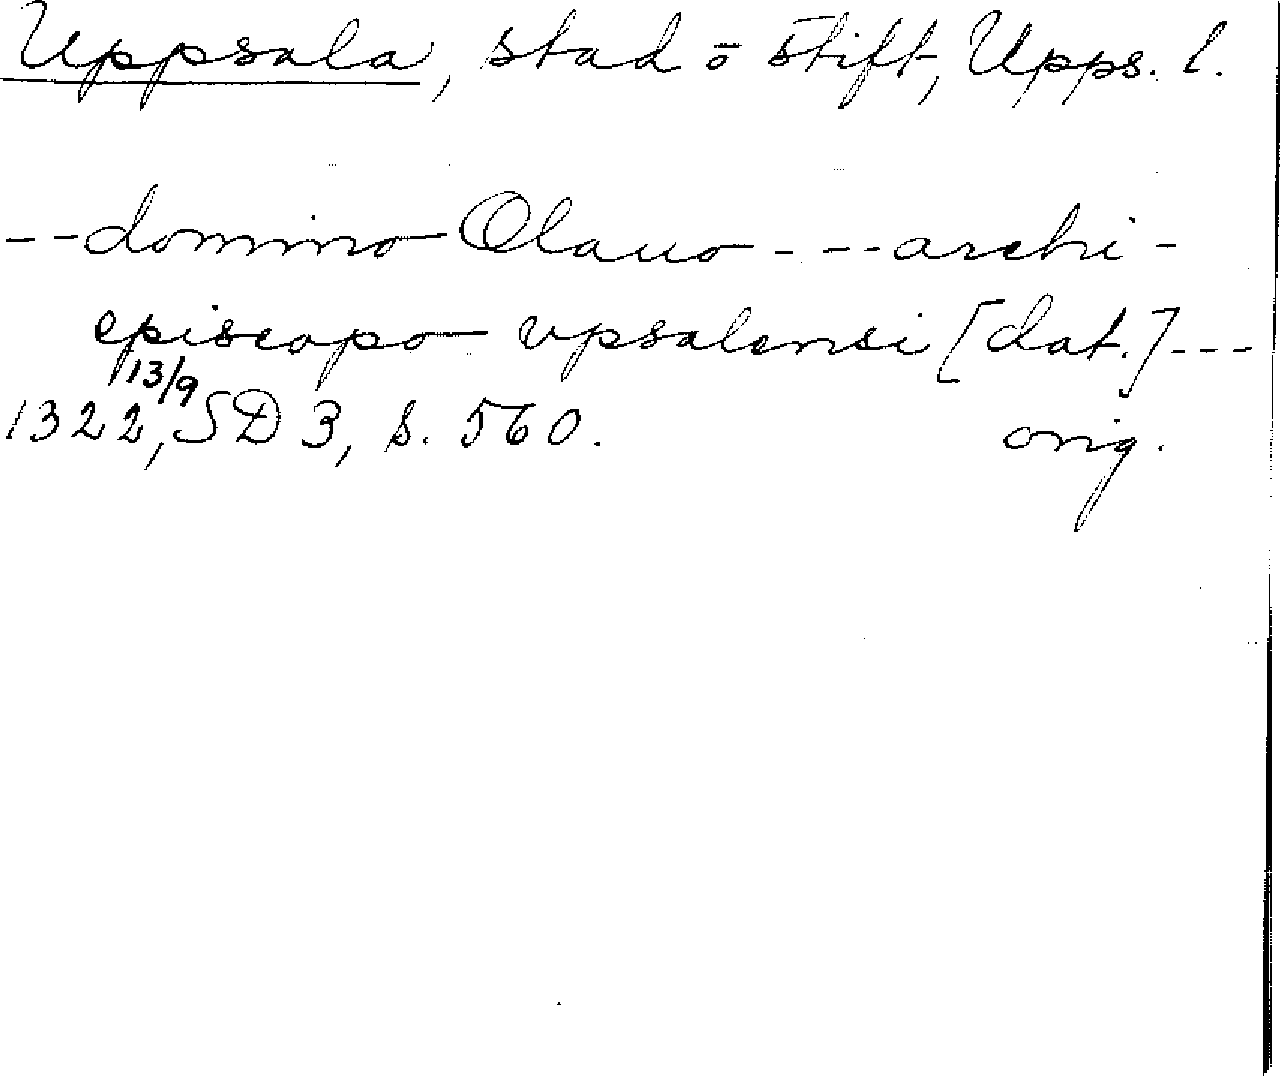 Uppsala, stad o stift, Upps. l.
-- domino Olauo - -- archi-
episcopo vpsalensi [dat.] ---
13/9
1322, SD 3, s. 560. orig.